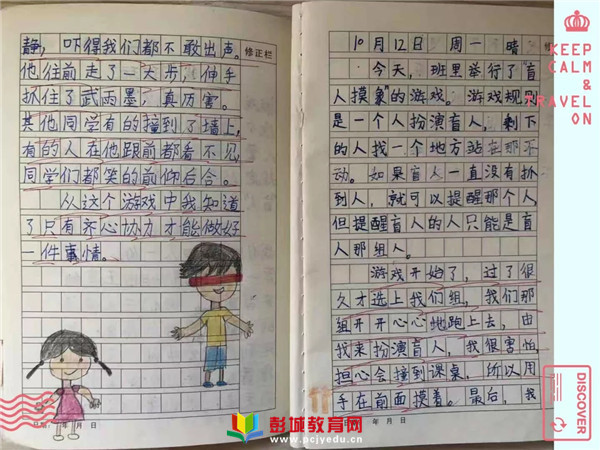 静，吓得我们都不敢出声。
他往前走了一大步，伸手
抓住了武雨墨，真厉害。
其他同学有的撞到了墙上，
有的人在他跟前都看不见，
同学们都笑的前仰后合。
从这个游戏中我知道
了只有齐心协力才能做好
一件事情。
修正栏
日期： 年 月 日
10月12日 周一 晴
今天，班里举行了"盲
人摸象"的游戏。游戏规则
是一个人扮演盲人，剩下
的人找一个地方站在那不
动。如果盲人一直没有抓
到人，就可以提醒那个人，
但提醒盲人的人只能是盲
人那组人。
游戏开始了，过了很
久才选上我们组，我们那
组开开心心地跑上去，由
我来扮演盲人，我很害怕，
担心会撞到课桌，所以用
手在前面摸着。最后，我
年 月 日
KEEP
CALM
&
TRAVEL
ON
DISCOVER
彭城教育网
www.pcjyedu.cn